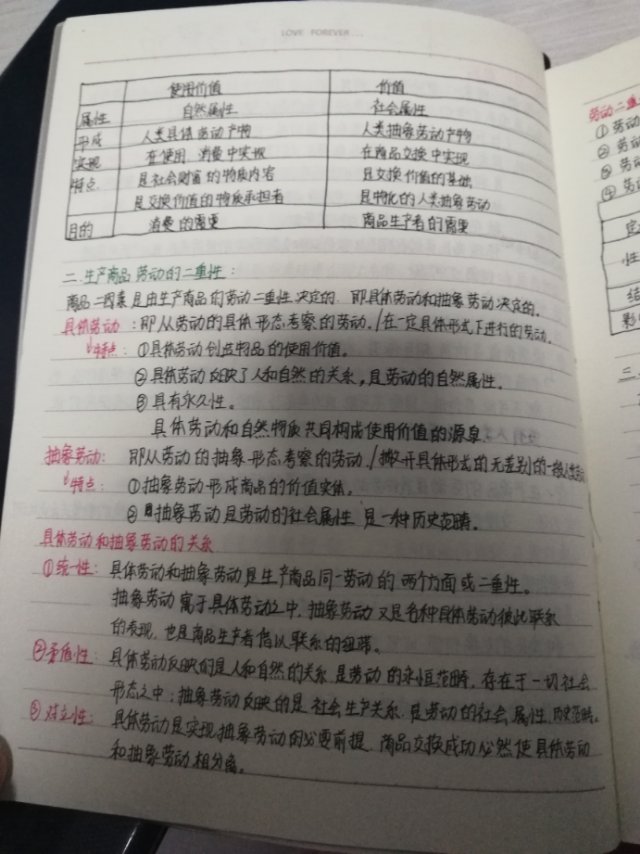 LOVE FOREVER...
使用价值 价值
属性 自然属性 社会属性
形成 人类具体劳动产物 人类抽象劳动产物
实现 在使用 消费中实现 在商品交换中实现
特点 是社会财富的物质内容 是交换价值的基础
是交换价值的物质承担者 是物化的人类抽象劳动
目的 消费的需要 商品生产者的需要
二.生产商品劳动的二重性:
商品二因素是由生产商品的劳动二重性决定的.即具体劳动和抽象劳动决定的.
具体劳动:即从劳动的具体形态考察的劳动./在一定具体形式下进行的劳动.
特点:①具体劳动创造物品的使用价值。
②具体劳动反映了人和自然的关系,是劳动的自然属性。
③具有永久性。
具体劳动和自然物质共同构成使用价值的源泉
抽象劳动:即从劳动的抽象形态考察的劳动./撇开具体形式的无差别的一般人类劳动
特点:①抽象劳动形成商品的价值实体。
②抽象劳动是劳动的社会属性 是一种历史范畴。
具体劳动和抽象劳动的关系
①统一性:具体劳动和抽象劳动是生产商品同一劳动的两个方面或二重性。
抽象劳动寓于具体劳动之中,抽象劳动又是各种具体劳动彼此联系
的表现,也是商品生产者借以联系的纽带。
②矛盾性:具体劳动反映的是人和自然的关系.是劳动的永恒范畴,存在于一切社会
形态之中;抽象劳动反映的是社会生产关系.是劳动的社会属性.历史范畴。
③对立性:具体劳动是实现抽象劳动的必要前提.商品交换成功必然使具体劳动
和抽象劳动相分离。
劳动二重
①劳动
②劳动
③劳动
④劳动
性
结
影
三.